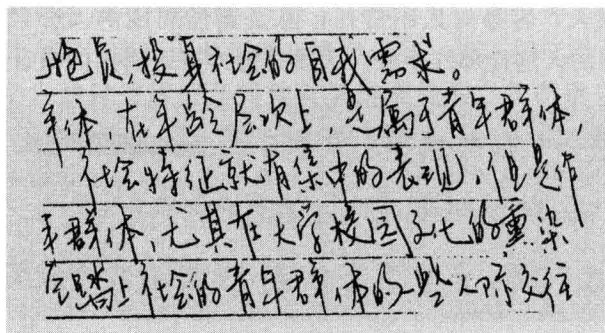 抱负,投身社会的自我需求。
年体,在年龄层次上,是属于青年群体,
社会特征就有集中的表现,但是作
年群体,尤其在大学校园文化的熏染
会踏上社会的青年群体的一些人际交往